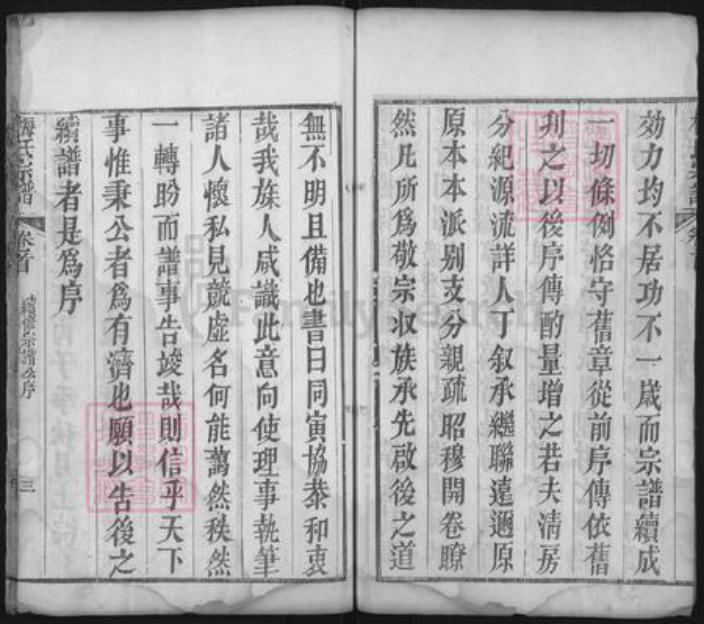 效力均不居功不一歲而宗譜續成
一切條例恪守舊章從前序傳依舊
刋之以後序傳酌量增之若夫清房
分紀源流詳人丁叙承繼聯遠邇原
原本本派别支分親疏昭穆開卷瞭
然凡所爲敬宗收族承先啟後之道
無不明且備也書曰同寅協恭和衷
哉我族人咸識此意向使理事執筆
諸人懷私見競虛名何能藹然秩然
一轉盼而譜事告竣哉則信乎天下
事惟秉公者爲有濟也願以告後之
續譜者是爲序
梅氏宗譜 卷首 續修宗譜公序 三